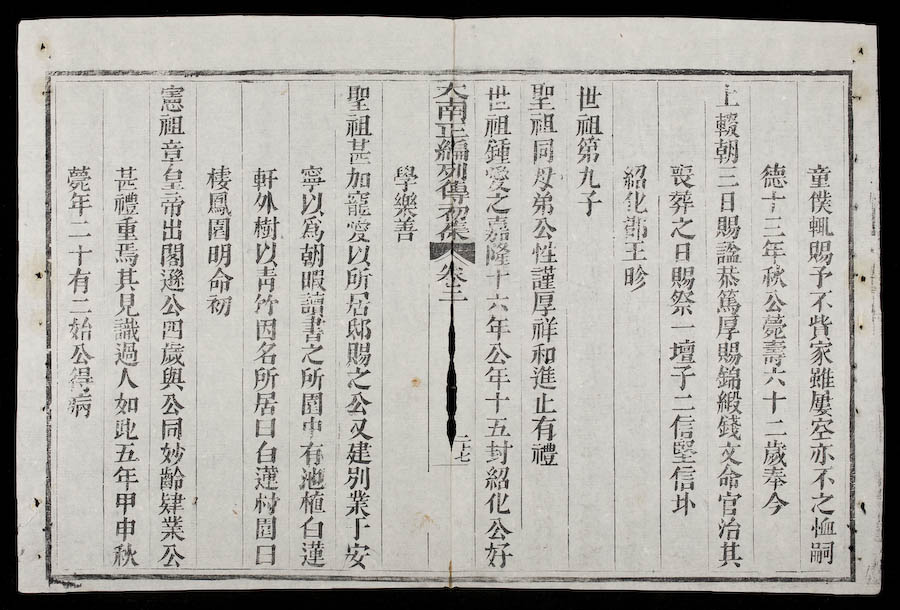 童僕輒賜予不貲家雖屢空亦不之恤嗣
德十三年秋公薨壽六十二歲奉今
上輟朝三日賜諡恭篤厚賜錦緞錢文命官治其
喪葬之日賜祭一壇子二信堅信圤
紹化郡王昣
世祖第九子
聖祖同母弟公性謹厚祥和進止有禮
世祖鍾愛之嘉隆十六年公年十五封紹化公好
大南正編列傳初集 卷三 二十七
學樂善
聖祖甚加寵愛以所居邸賜之公又建別業于安
寧以爲朝暇讀書之所園中有池植白蓮
軒外樹以靑竹因名所居曰白蓮村園曰
棲鳳園明命初
憲祖章皇帝出閣遜公四歲與公同妙齡肄業公
甚禮重焉其見識過人如此五年甲申秋
薨年二十有二始公得病